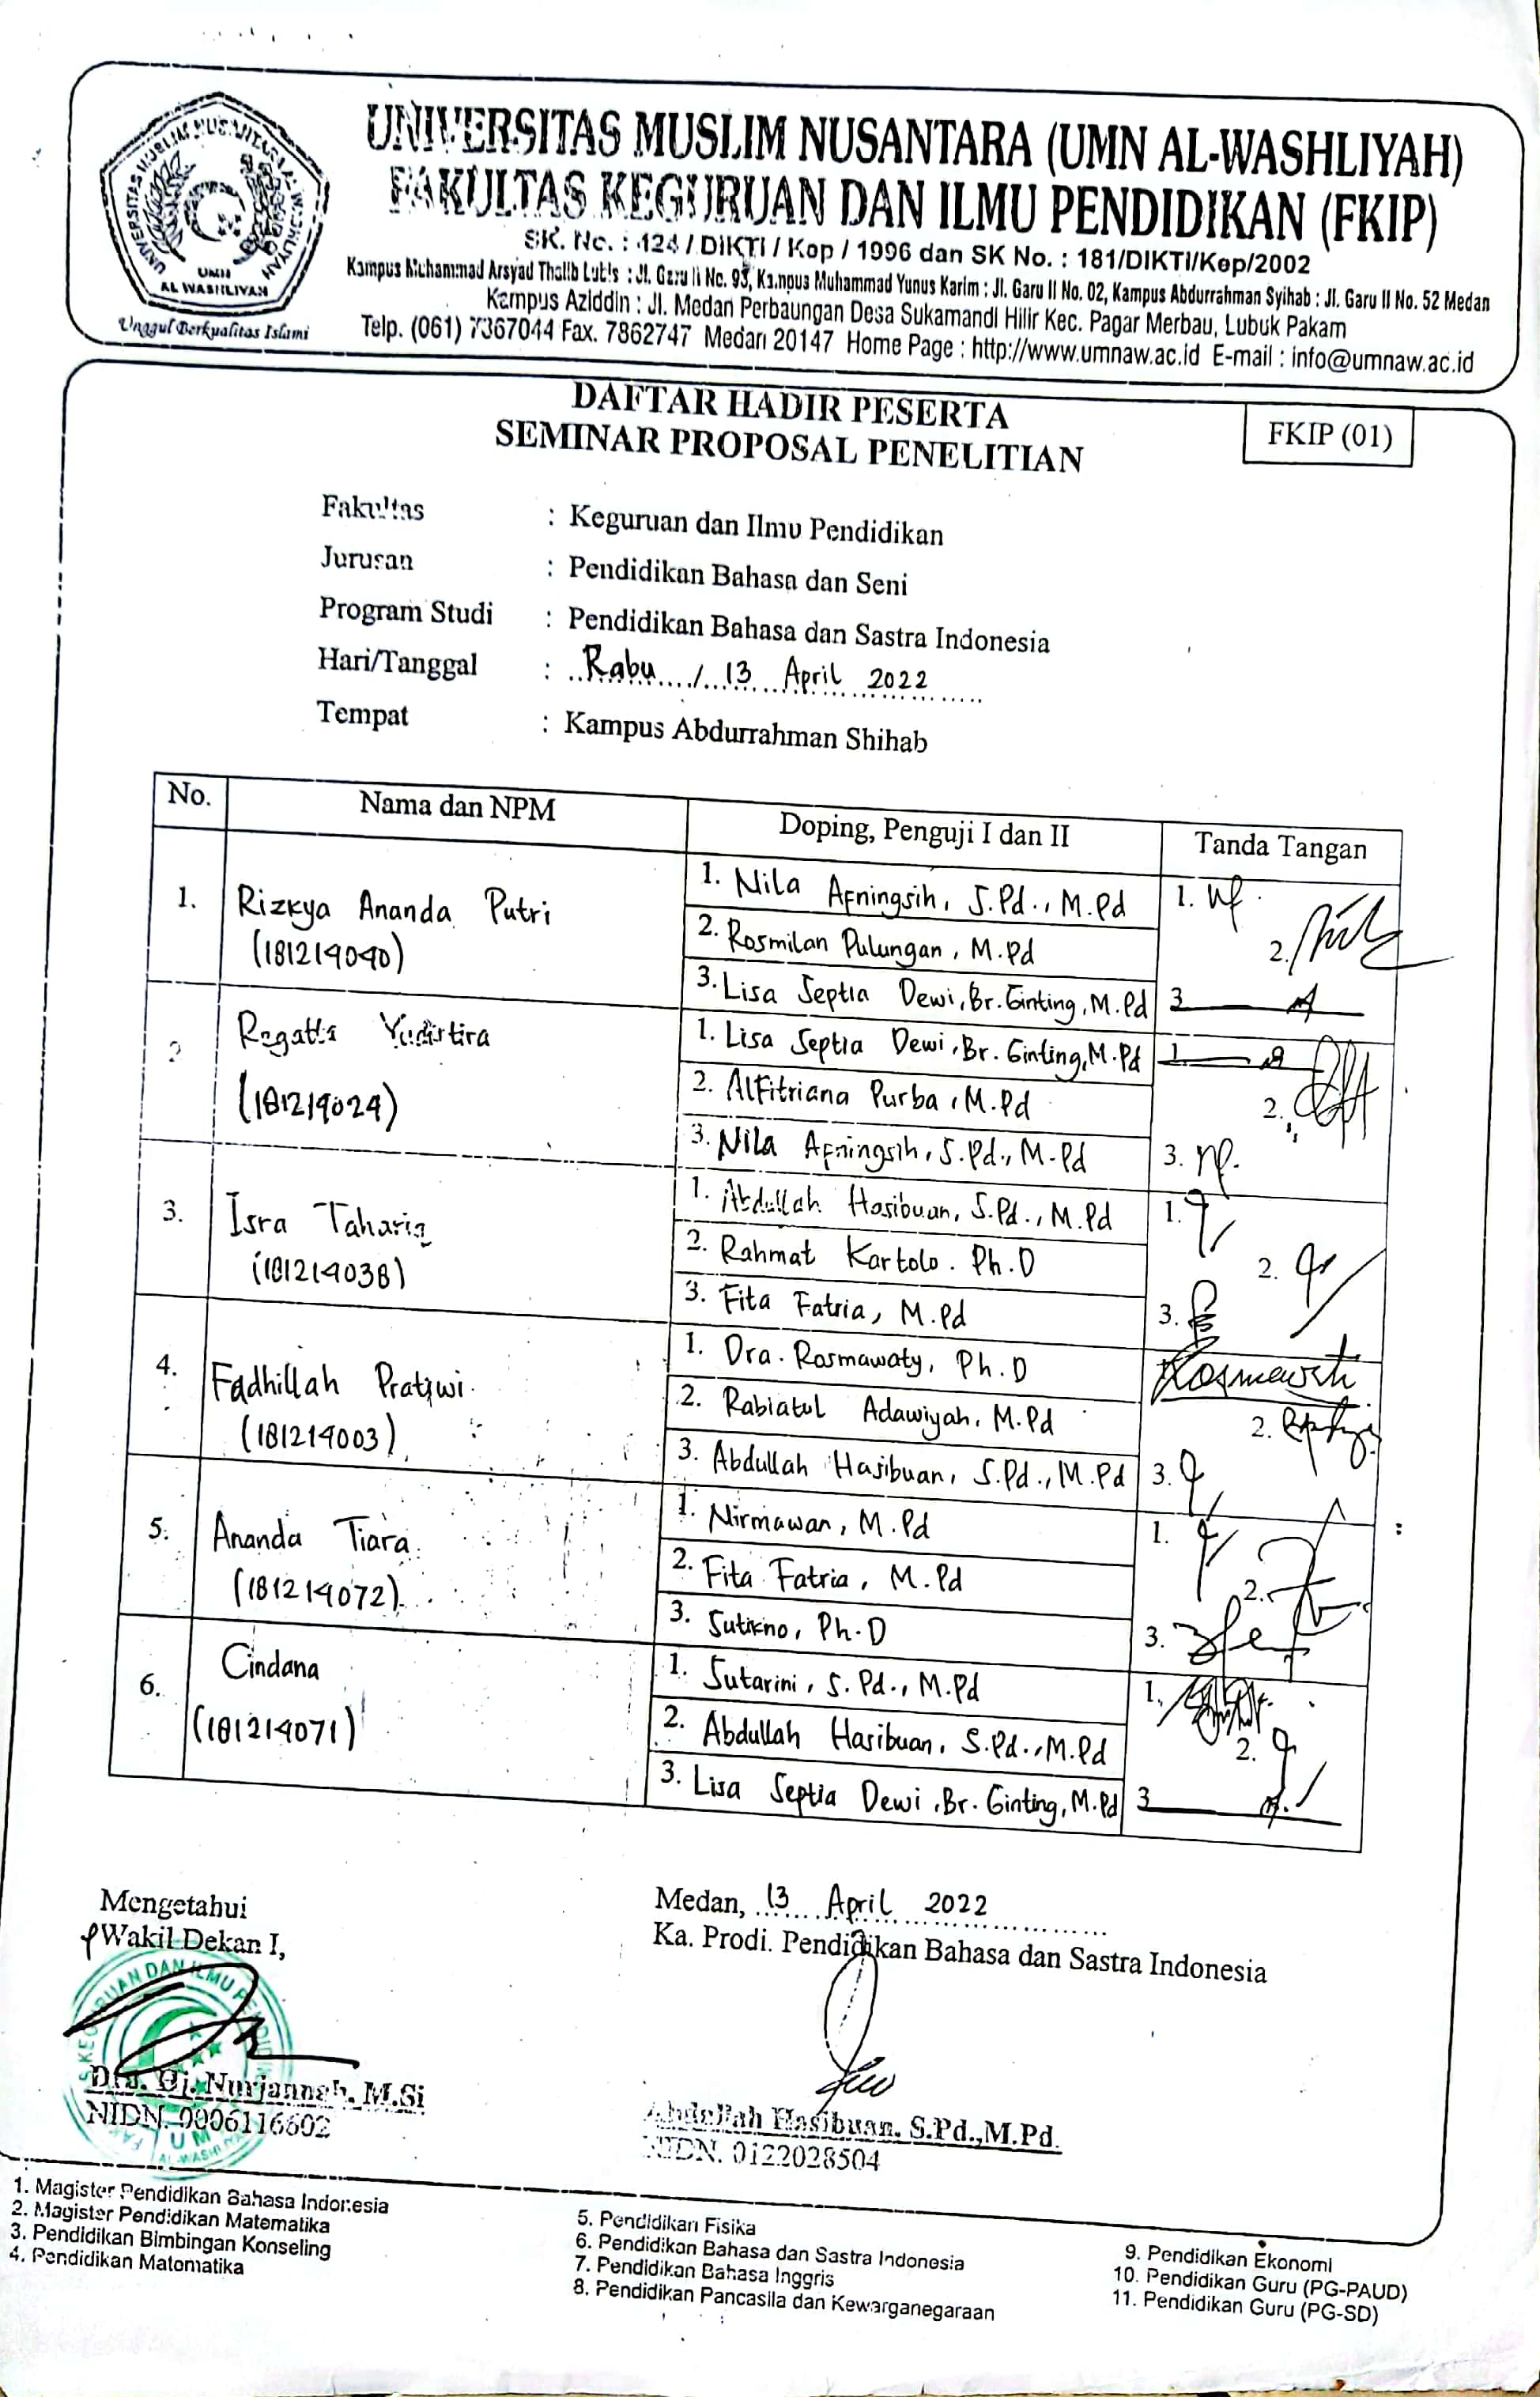 UNIVERSITAS MUSLIM NUSANTARA (UMN AL-WASHLIYAH)
FAKULTAS KEGURUAN DAN ILMU PENDIDIKAN (FKIP)
SK. No. : 424 / DIKTI / Kep / 1996 dan SK No. : 181/DIKTI/Kep/2002
Kampus Muhammad Arsyad Thalib Lubis : Jl. Garu II No. 93, Kampus Muhammad Yunus Karim : Jl. Garu II No. 02, Kampus Abdurrahman Syihab : Jl. Garu II No. 52 Medan
Kampus Aziddin : Jl. Medan Perbaungan Desa Sukamandi Hilir Kec. Pagar Merbau, Lubuk Pakam
Telp. (061) 7367044 Fax. 7862747 Medan 20147 Home Page : http://www.umnaw.ac.id E-mail : info@umnaw.ac.id
UNIVERSITAS MUSLIM NUSANTARA AL WASHLIYAH
UMN
AL WASHLIYAH
Unggul Berkualitas Islami
DAFTAR HADIR PESERTA
SEMINAR PROPOSAL PENELITIAN
FKIP (01)
Fakultas : Keguruan dan Ilmu Pendidikan
Jurusan : Pendidikan Bahasa dan Seni
Program Studi : Pendidikan Bahasa dan Sastra Indonesia
Hari/Tanggal : Rabu / 13 April 2022
Tempat : Kampus Abdurrahman Shihab
No. Nama dan NPM Doping, Penguji I dan II Tanda Tangan
1. Rizkya Ananda Putri
(181214040)
1. Nila Afningsih, S.Pd., M.Pd 1.
2. Rosmilan Pulungan, M.Pd 2.
3. Lisa Septia Dewi, Br. Ginting, M.Pd 3
2 Regatta Yudistira
(181214024)
1. Lisa Septia Dewi, Br. Ginting, M.Pd 1
2. Alfitriana Purba, M.Pd 2.
3. Nila Afningsih, S.Pd., M.Pd 3.
3. Isra Taharia
(181214038)
1. Abdullah Hasibuan, S.Pd., M.Pd 1.
2. Rahmat Kartolo. Ph.D 2.
3. Fita Fatria, M.Pd 3.
4. Fadhillah Pratiwi
(181214003)
1. Dra. Rosmawaty, Ph.D
2. Rabiatul Adawiyah, M.Pd 2.
3. Abdullah Hasibuan, S.Pd., M.Pd 3.
5. Ananda Tiara
(181214072)
1. Nirmawan, M.Pd 1.
2. Fita Fatria, M.Pd 2.
3. Sutikno, Ph.D 3.
6. Cindana
(181214071)
1. Sutarini, S.Pd., M.Pd 1.
2. Abdullah Hasibuan, S.Pd., M.Pd 2.
3. Lisa Septia Dewi, Br. Ginting, M.Pd 3
Mengetahui
Wakil Dekan I,
Dra. Hj. Nurjannah, M.Si
NIDN. 0006116602
Medan, 13 April 2022
Ka. Prodi. Pendidikan Bahasa dan Sastra Indonesia
Abdullah Hasibuan, S.Pd.,M.Pd
NIDN. 0122028504
1. Magister Pendidikan Bahasa Indonesia
2. Magister Pendidikan Matematika
3. Pendidikan Bimbingan Konseling
4. Pendidikan Matematika
5. Pendidikan Fisika
6. Pendidikan Bahasa dan Sastra Indonesia
7. Pendidikan Bahasa Inggris
8. Pendidikan Pancasila dan Kewarganegaraan
9. Pendidikan Ekonomi
10. Pendidikan Guru (PG-PAUD)
11. Pendidikan Guru (PG-SD)